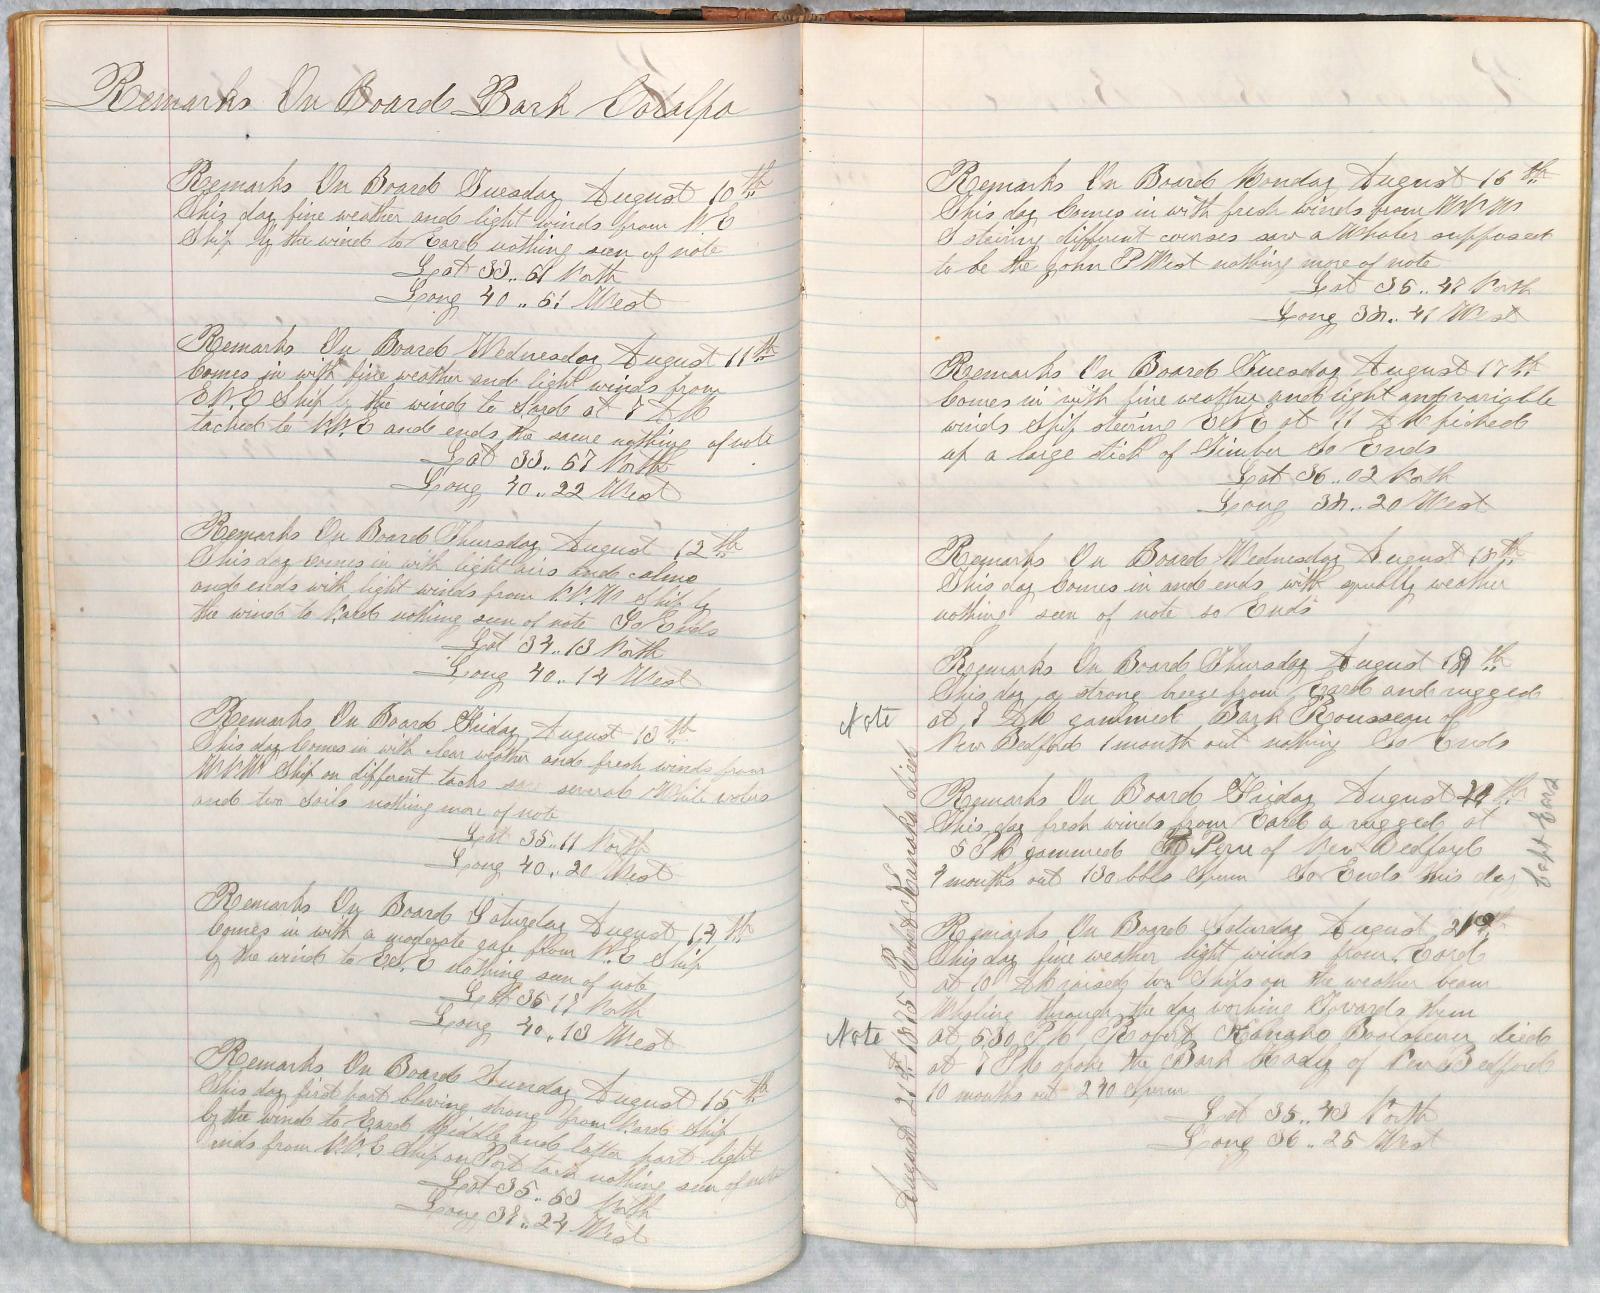 Remarks On Board Bark Catalpa
Remarks On Board Tuesday August 10th
This day fine weather and light winds from N.E
Ship by the wind to Eard nothing seen of note
Lat 33..51 North
Long 40..51 West
Remarks On Board Wednesday August 11th
Comes in with fine weather and light winds from
E.N.E Ship by the wind to Sard at 7 A M
tacked to N.N.E and ends the same nothing of note
Lat 33..57 North
Long 40..22 West
Remarks On Board Thursday August 12th
This day comes in with light airs and calms
and ends with light winds from N.N.W Ship by
the wind to Eard nothing seen of note So Ends
Lat 34..13 North
Long 40..14 West
Remarks On Board Friday August 13th
This day Comes in with clear weather and fresh winds from
W.N.W Ship on different tacks saw several White waters
and two Sails nothing more of note
Lat 35..11 North
Long 40..20 West
Remarks On Board Saturday August 14th
Comes in with a moderate gale from N.E Ship
by the wind to ES.E nothing seen of note
Lat 35 17 North
Long 40..13 West
Remarks On Board Sunday August 15th
This day first part blowing strong from Nard Ship
by the wind to Eard Middle and latter part light
winds from N.N.E Ship on Port tack nothing seen of note
Lat 35..53 North
Long 39..24 West
Remarks On Board Monday August 16th
This day Comes in with fresh winds from W.N.W
Steering different courses saw a Whaler supposed
to be the John P West nothing more of note
Lat 35..47 North
Long 38..41 West
Remarks On Board Tuesday August 17th
Comes in with fine weather and light and variable
winds Ship steering ES.E at 11 A M picked
up a large stick of Timber So Ends
Lat 36..02 North
Long 38..20 West
Remarks On Board Wednesday August 18th
This day Comes in and ends with squally weather
nothing seen of note so Ends
Remarks On Board Thursday August 19th
This day a strong breeze from Eard and rugged
Note at 7 A M gammed Bark Rousseau of
New Bedford 1 month out nothing So Ends
Remarks On Board Friday August 20th
This day fresh winds from Eard a rugged at
5 P M gammed of New Bedford
4 months out 130 bbls Sperm So Ends this day
Capt Eard
Remarks On Board Saturday August 21st
This day fine weather light winds from Eard
at 10 A M raised two Ships on the weather beam
Whaling through the day working Towards them
Note at 5.30 P M Robert Kanaka Boatsteerer died
at 7 P M spoke the Bark of New Bedford
10 months out 240 Sperm
Lat 35..43 North
Long 36..25 West
August 21st 1875 Robt Kanaka died